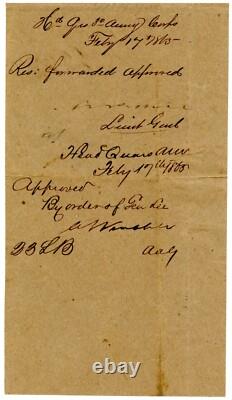 Hd Qrs 3d Army Corps
Feby 17th 1865
Res: forwarded Approved
Lieut Genl
Head Quars ANV
Feby 17th 1865
Approved
By order of Gen Lee
AAG
23 LB
ebay